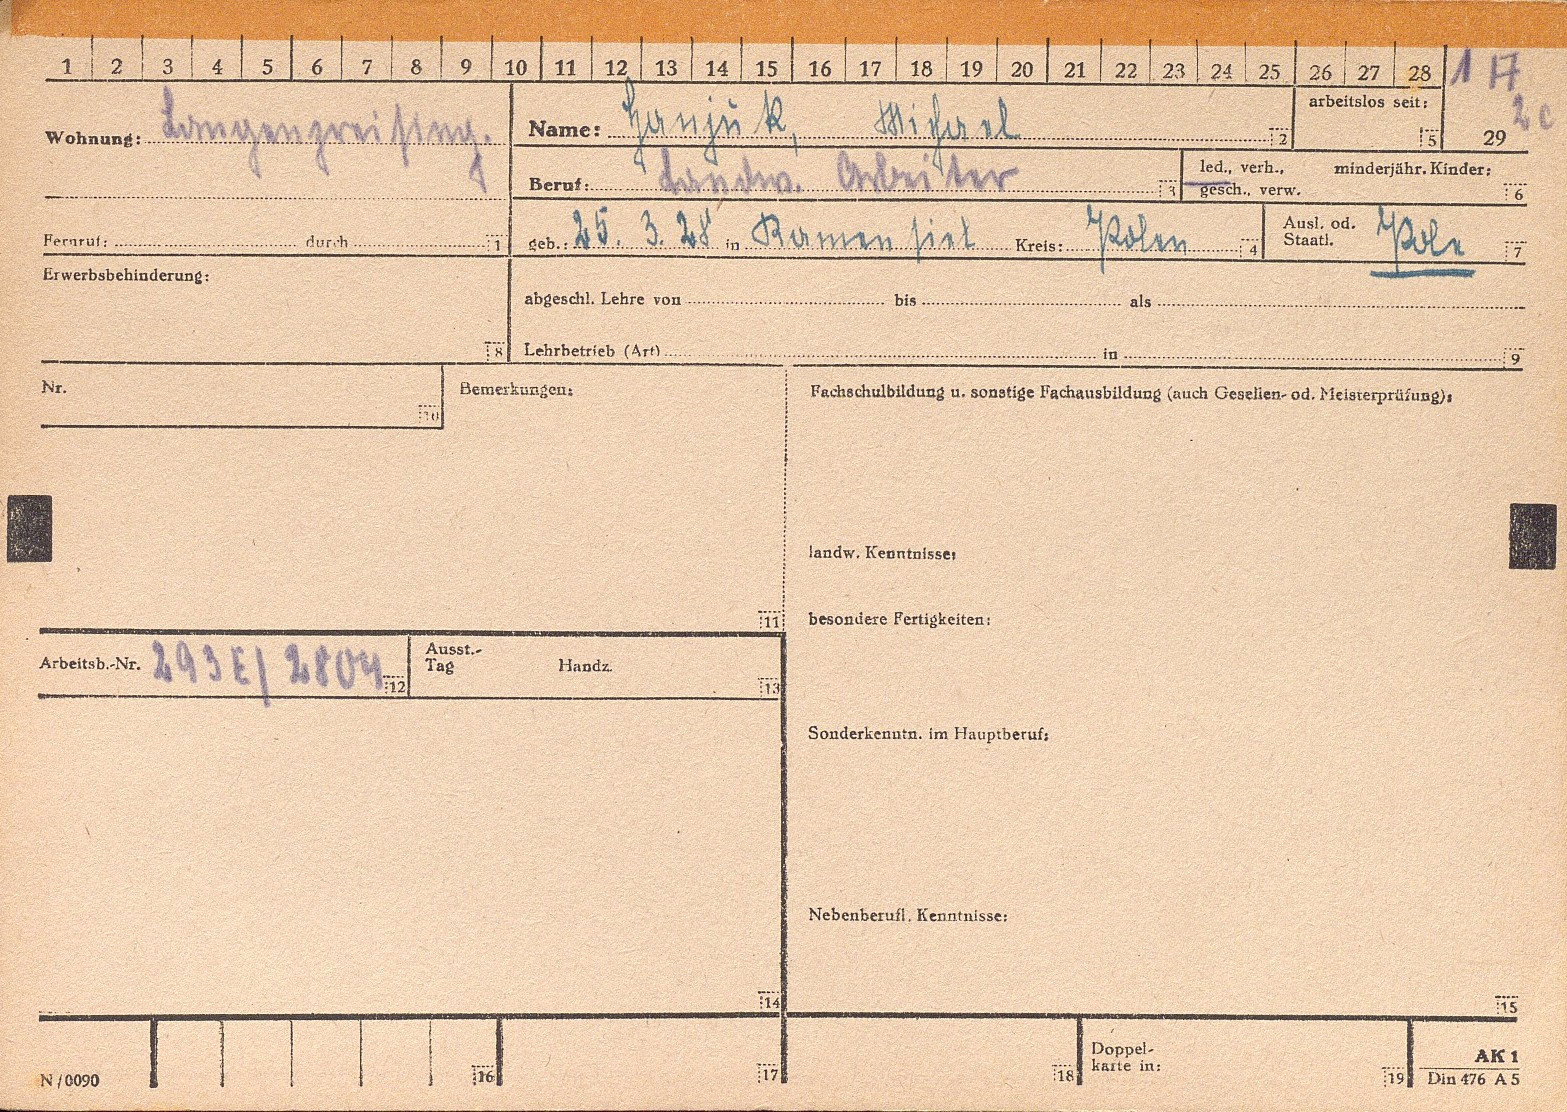 1 2 3 4 5 6 7 8 9 10 11 12 13 14 15 16 17 18 19 20 21 22 23 24 25 26 27 28 1 17
2c
Wohnung: Langengreising.
Name: Hanjuk, Michael 2
arbeitslos seit: 5
29
Beruf: Landw. Arbeiter 3
led., verh., gesch., verw.
minderjähr. Kinder: 6
Fernruf: durch 1
geb.: 25. 3. 28 in Kamensiel Kreis: Polen 4
Ausl. od. Staatl. Pole 7
Erwerbsbehinderung: 8
abgeschl. Lehre von bis als
Lehrbetrieb (Art) in 9
Nr. 10
Bemerkungen: 11
Fachschulbildung u. sonstige Fachausbildung (auch Gesellen- od. Meisterprüfung):
landw. Kenntnisse:
besondere Fertigkeiten:
Arbeitsb.-Nr. 293E/2804 12
Ausst.-Tag Handz. 13
Sonderkenntn. im Hauptberuf:
Nebenberufl. Kenntnisse:
14
15
N/0090 16 17 18
Doppelkarte in: 19
AK 1
Din 476 A 5